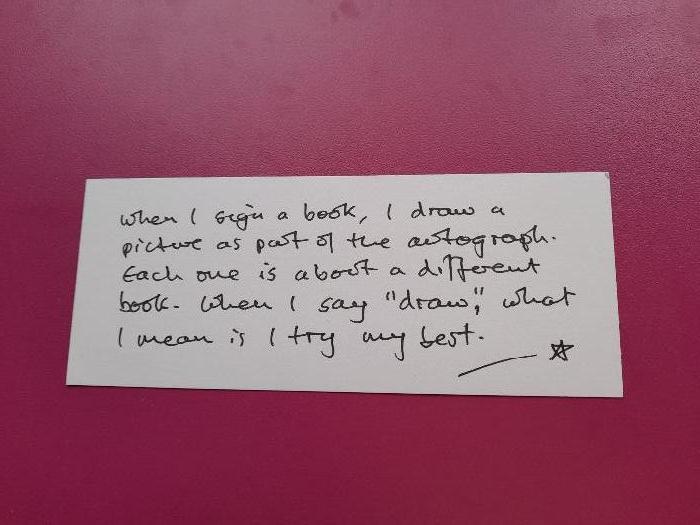 When I sign a book, I draw a
picture as part of the autograph.
Each one is about a different
book. When I say "draw", what
I mean is I try my best.